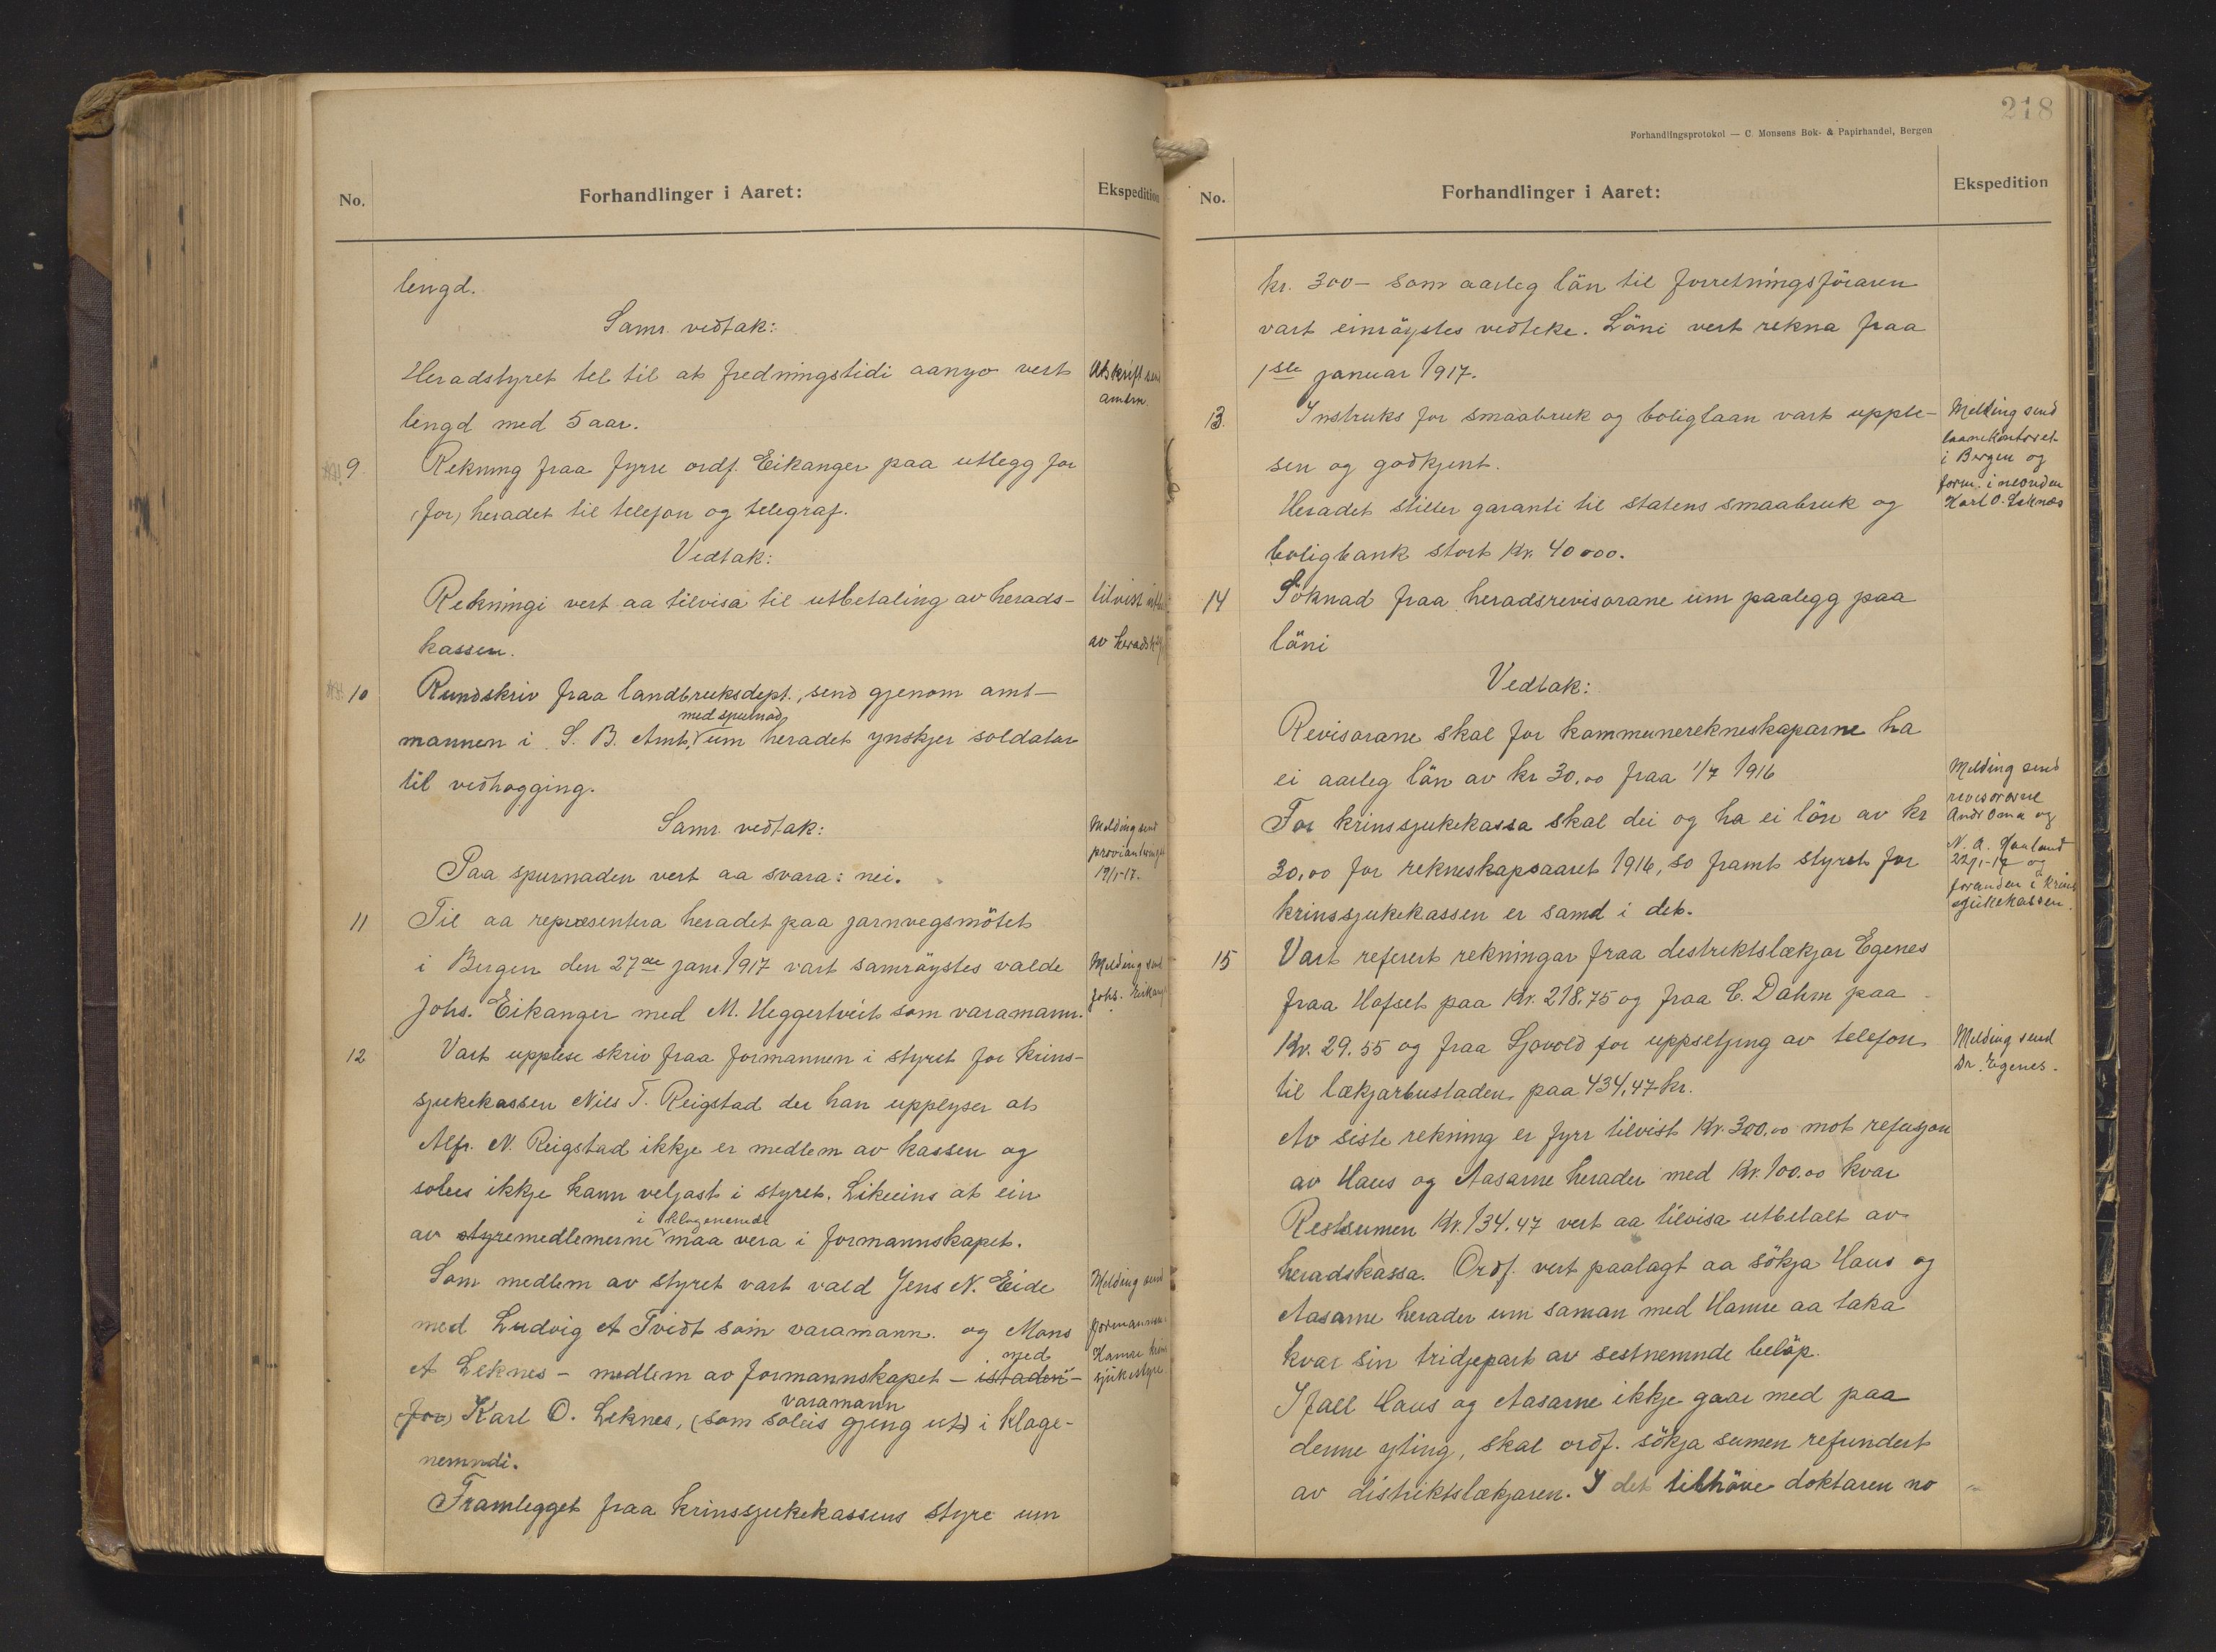 No.
Forhandlinger i Aaret:
Ekspedition
lengd.
Samr. vedtak:
Heradstyret tel til at fredningstidi aanyo vert
lengd med 5 aar.
Avskrift send
amtm.
9
Rekning fraa fyrre ordf. Eikanger paa utlegg for
(for) heradet til telefon og telegraf.
Vedtak:
Rekningi vert aa tilvisa til utbetaling av herads-
kassen.
tilvist
av heradsk
10
Rundskriv fraa landbruksdept., send gjenom amt-
med spurnad
mannen i S. B. Amt, um heradet ynskjer soldatar
til vedhogging.
Samr. vedtak:
Paa spurnaden vert aa svara: nei.
Melding send
provianterings
19/1-17.
11
Til aa repræsentera heradet paa jarnvegsmötet
i Bergen den 27de janr. 1917 vart samröystes valde
Johs. Eikanger med M. Heggertveit som varamann.
Melding send
Johs. Eikang
12
Vart upplese skriv fraa formannen i styret for krins-
sjukekassen Nils T. Reigstad der han upplyser at
Alfr. N. Reigstad ikkje er medlem av kassen og
soleis ikkje kann veljast i styret. Likeeins at ein
i klagenemdi
av styremedlemerne maa vera i formannskapet.
Som medlem av styret vart vald Jens N. Eide
med Ludvig A Tvidt som varamann. og Mons
med
A Leknes - medlem av formannskapet - istaden -
varamann
(for) Karl O. Leknes, (som soleis gjeng ut) i klage-
nemndi.
Melding send
formannen
Hamre krins
sjukestyre
Framlegget fraa krinssjukekassens styre um
218
Forhandlingsprotokol — C. Monsens Bok- & Papirhandel, Bergen
No.
Forhandlinger i Aaret:
Ekspedition
kr. 300- som aarleg lön til forretningsföraren
vart einröystes vedteke. Löni vert rekna fraa
1ste januar 1917.
13.
Instruks for smaabruk og boliglaan vart upple-
sen og godkjent.
Heradet stiller garanti til statens smaabruk og
boligbank stort Kr. 40000.
Melding send
laanekontoret
i Bergen og
form. i nemnden
Karl O. Leknes
14
Söknad fraa heradsrevisorane um paalegg paa
löni
Vedtak:
Revisorane skal for kommunerekneskaparne ha
ei aarleg lön av kr 30,00 fraa 1/7 1916
For krinssjukekassa skal dei og ha ei lön av kr
30,00 for rekneskapsaaret 1916, so framt styret for
krinssjukekassen er samd i det.
Melding send
revisorane
Andr Oma og
N. A. Hauland
22/1-17 og
formnden i krins
sjukekassen.
15
Vart referert rekningar fraa destriktslækjar Egenes
fraa Hofset paa Kr. 218.75 og fraa C. Dahm paa
Kr. 29.55 og fraa Sjovold for uppsetjing av telefon
til lækjarbustaden, paa 434,47 kr.
Av siste rekning er fyrr tilvist Kr. 300,00 mot refusjon
av Haus og Aasarne herader med Kr. 100.00 kvar
Restsumen Kr. 134.47 vert aa tilvisa utbetalt av
heradskassa. Ordf. vert paalagt aa sökja Haus og
Aasarne herader um saman med Hamre aa taka
kvar sin tridjepart av sestnemnde belöp.
I fall Haus og Aasarne ikkje gaar med paa
denne yting, skal ordf. sökja sumen refundert
av distriktslækjaren. I det tilhöve doktaren no
Melding send
Dr. Egenes.